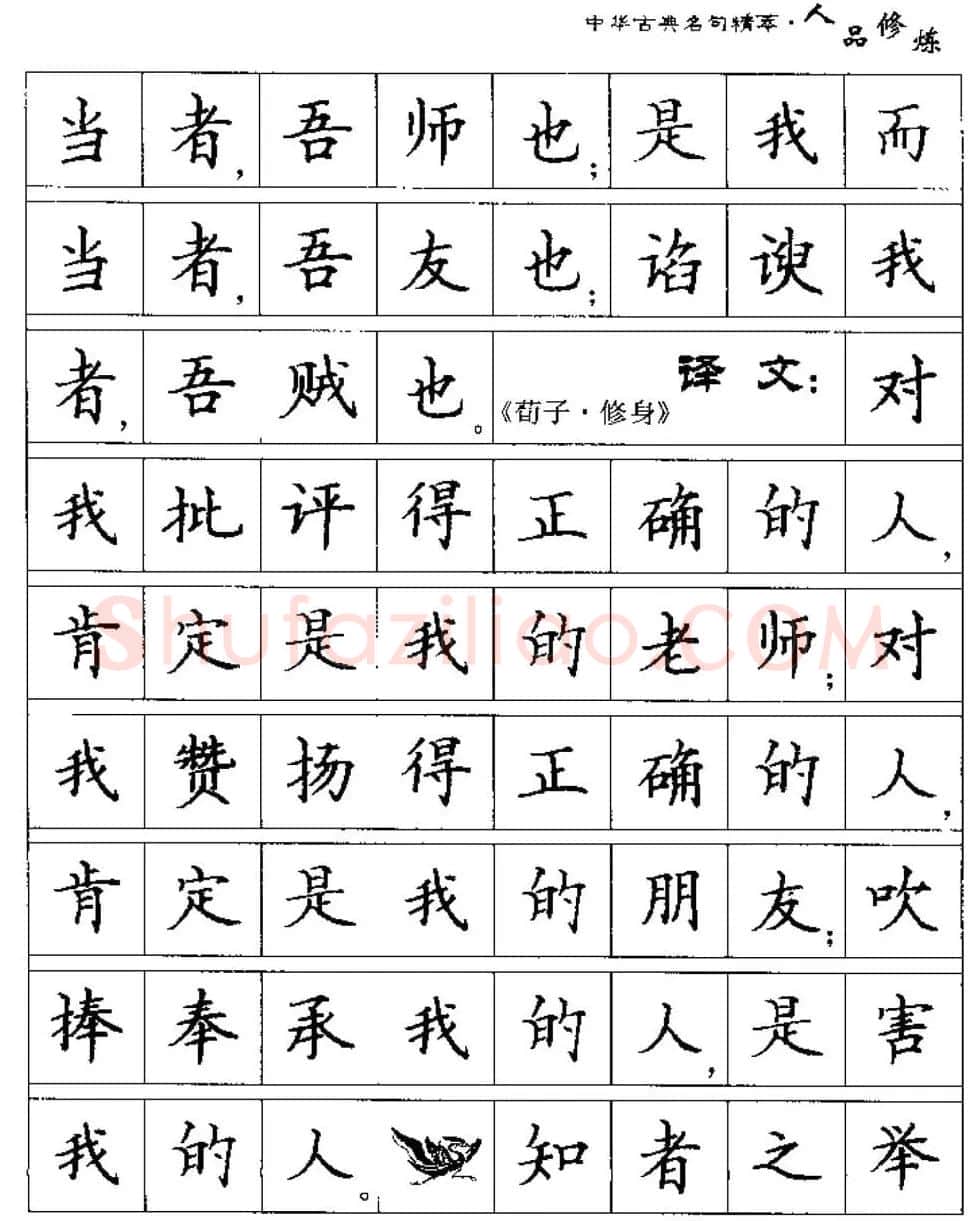 中华古典名句精萃·人品修炼
当者,吾师也;是我而
当者,吾友也;谄谀我
者,吾贼也。《荀子·修身》译文:对
我批评得正确的人,
肯定是我的老师;对
我赞扬得正确的人,
肯定是我的朋友;吹
捧奉承我的人,是害
我的人。知者之举
Shufaziliao.COM